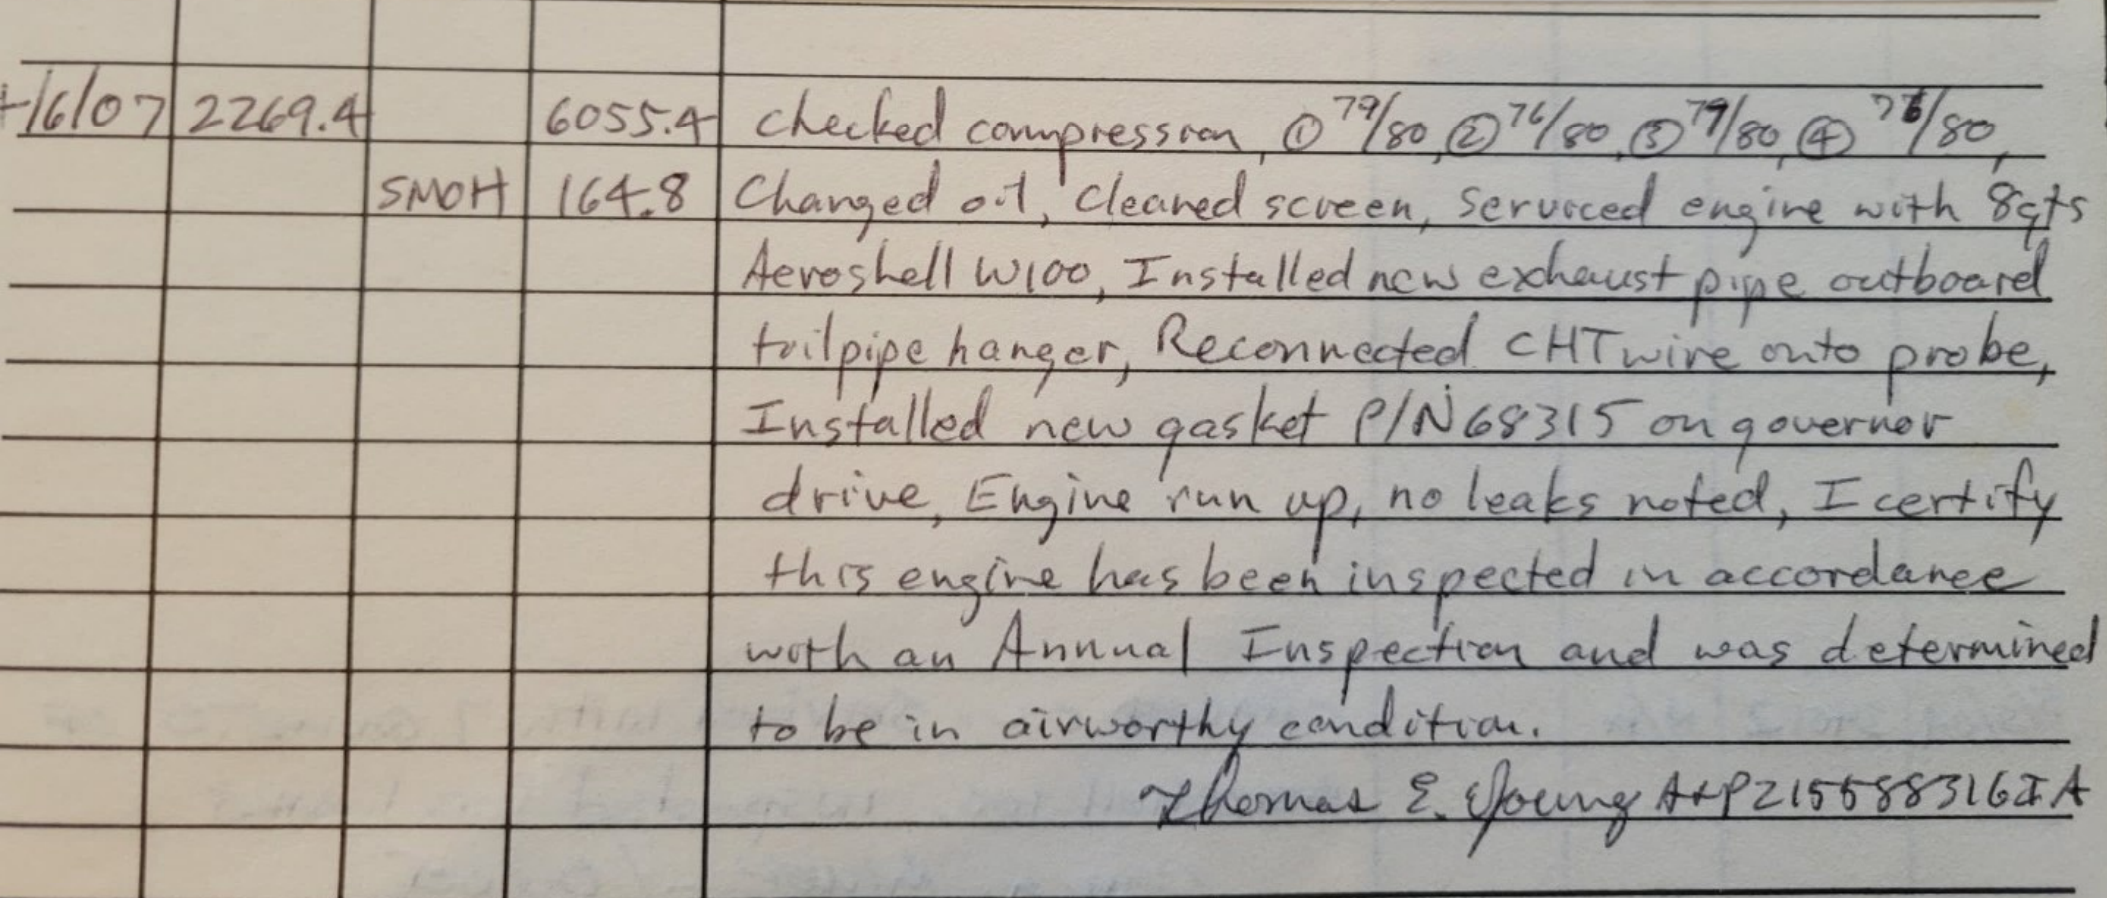 /6/07 2269.4 6055.4 Checked compression, ① 79/80, ② 76/80, ③ 79/80, ④ /80,
SMOH 164.8 Changed oil, Cleaned screen, Serviced engine with 8qts
Aeroshell W100, Installed new exhaust pipe outboard
tailpipe hanger, Reconnected CHT wire onto probe,
Installed new gasket P/N 68315 on governor
drive, Engine run up, no leaks noted, I certify
this engine has been inspected in accordance
with an Annual Inspection and was determined
to be in airworthy condition.
Thomas E. Young A&P 215588316IA